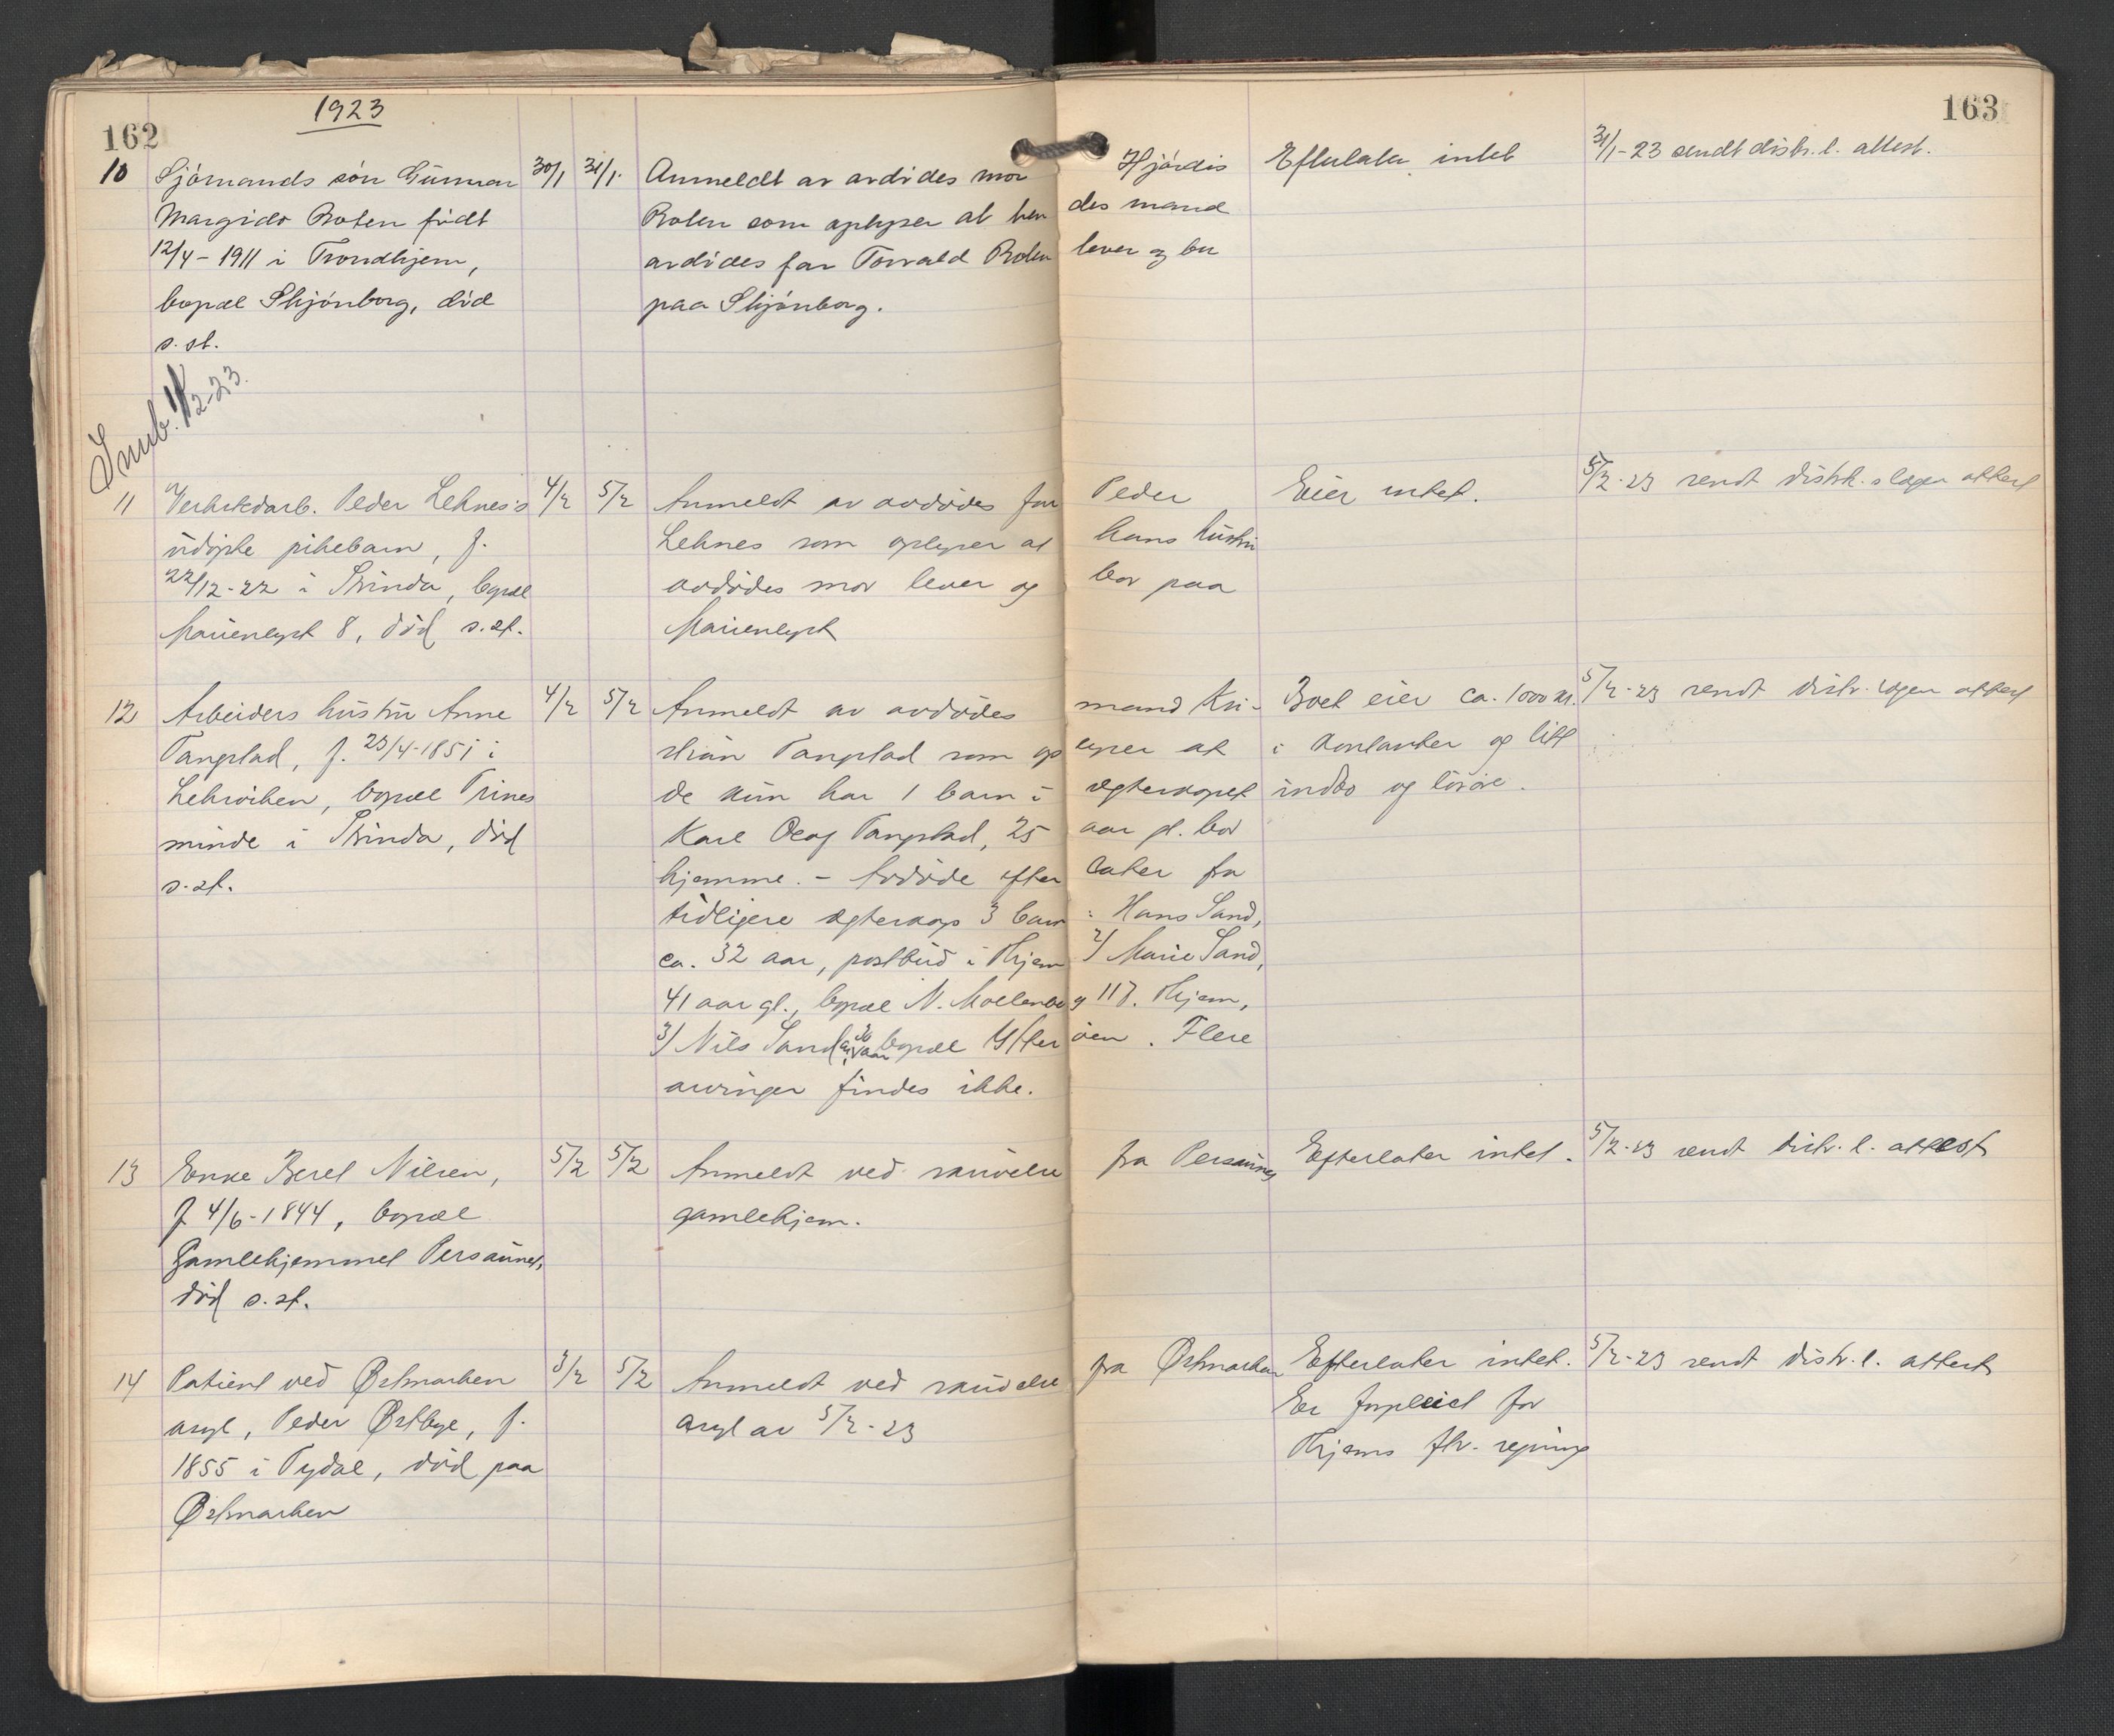 162
1923
163
10 Sjömands sön Gunnar 30/1 31/1 Anmeldt av avdödes mor Hjördis Efterlater intet 31/1-23 sendt distr. l. attest.
Margido Roten född Roten som oplyser at hen des mand
12/4-1911 i Trondhjem, avdödes far Torvald Roten lever og bor
bopæl Skjönborg, död paa Skjönborg.
s. st.
Innb. 1/2-23.
11 Verkstedarb. Peder Leknes's 4/2 5/2 Anmeldt av avdödes far Peder Eier intet. 5/2-23 sendt distrk.slægen attest
udöpte pikebarn, f. Leknes som oplyser at hans hustru
22/12-22 i Strinda, bopæl avdödes mor lever og bor paa
Marienlyst 8, död s. st. Marienlyst
12 Arbeiders hustru Anne 4/2 5/2 Anmeldt av avdödes mand Kri- Boet eier ca. 1000 kr. 5/2-23 sendt distr. lægen attest
Tangstad, f. 23/4-1851 i stian Tangstad som op lyser at i kontanter og litt
Leksviken, bopæl Trines de kun har 1 barn i egteskapet indbo og lösöre.
minde i Strinda, död Karl Olaf Tangstad, 25 aar gl. bor
s. st. hjemme. - Avdöde efter later fra
tidligere egteskap 3 barn : Hans Sand,
ca. 32 aar, postbud i Thjem 2/ Marie Sand,
41 aar gl., bopæl N. Møllenbe g 117. Thjem,
3/ Nils Sand ca. 30 aar bopæl Ytter öen. Flere
arvinger findes ikke.
13 Enke Beret Nilsen, 5/2 5/2 Anmeldt ved skrivelse fra Persaunes Efterlater intet. 5/2-23 sendt distr. l. attest
f. 4/6-1844, bopæl gamlehjem.
Gamlehjemmet Persaunet,
död s. st.
14 Patient ved Østmarken 3/2 5/2 Anmeldt ved skrivelse fra Østmarken Efterlater intet. 5/2-23 sendt distr. l. attest
asyl, Peder Østbye, f. asyl av 5/2-23 Er forpleiet for
1855 i Tydal, död paa Thjems fk. regning
Østmarken